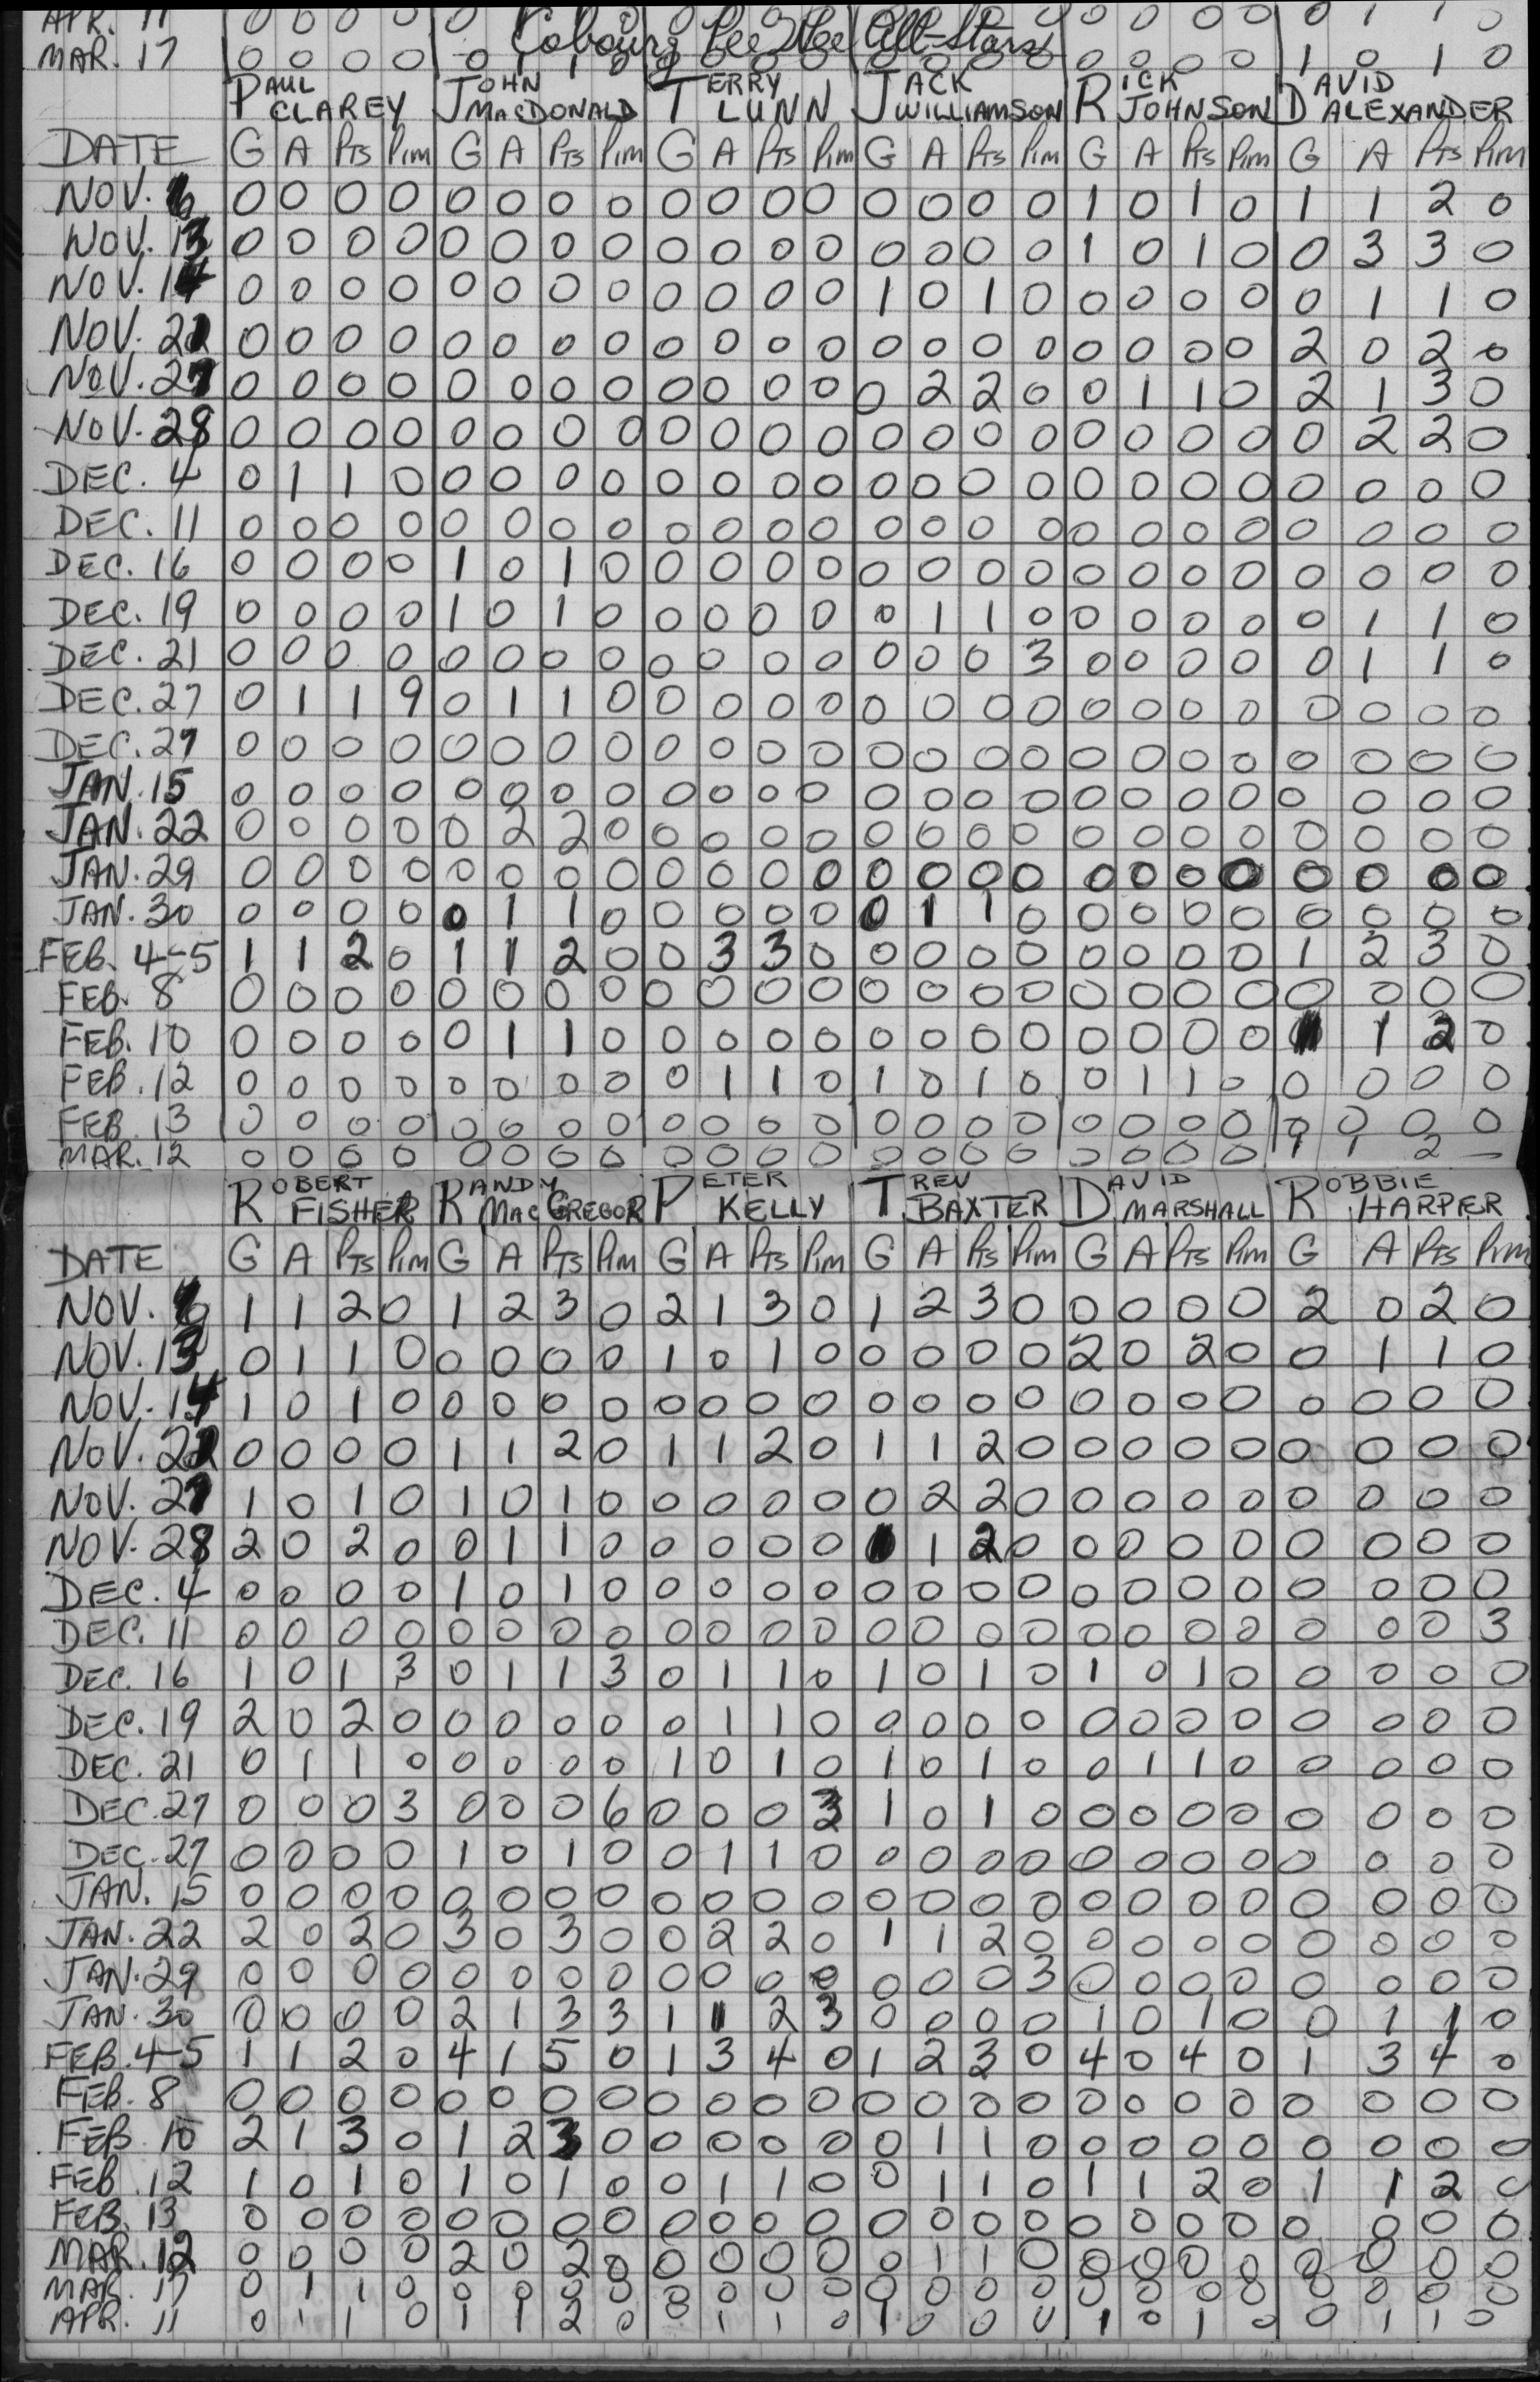 APR. 11 0 0 0 0 0 0 0 0 0 0 0 0 0 1 1 0
Cobourg Pee Wee All-Stars
MAR. 17 0 0 0 0 0 1 1 0 0 0 0 0 0 0 0 0 0 0 0 0 1 0 1 0
PAUL CLAREY JOHN MACDONALD TERRY LUNN JACK WILLIAMSON RICK JOHNSON DAVID ALEXANDER
DATE G A PTS PIM G A PTS PIM G A PTS PIM G A PTS PIM G A PTS PIM G A PTS PIM
NOV. 6 0 0 0 0 0 0 0 0 0 0 0 0 0 0 0 0 1 0 1 0 1 1 2 0
NOV. 13 0 0 0 0 0 0 0 0 0 0 0 0 0 0 0 0 1 0 1 0 0 3 3 0
NOV. 14 0 0 0 0 0 0 0 0 0 0 0 0 1 0 1 0 0 0 0 0 0 1 1 0
NOV. 21 0 0 0 0 0 0 0 0 0 0 0 0 0 0 0 0 0 0 0 0 2 0 2 0
NOV. 27 0 0 0 0 0 0 0 0 0 0 0 0 0 2 2 0 0 1 1 0 2 1 3 0
NOV. 28 0 0 0 0 0 0 0 0 0 0 0 0 0 0 0 0 0 0 0 0 0 2 2 0
DEC. 4 0 1 1 0 0 0 0 0 0 0 0 0 0 0 0 0 0 0 0 0 0 0 0 0
DEC. 11 0 0 0 0 0 0 0 0 0 0 0 0 0 0 0 0 0 0 0 0 0 0 0 0
DEC. 16 0 0 0 0 1 0 1 0 0 0 0 0 0 0 0 0 0 0 0 0 0 0 0 0
DEC. 19 0 0 0 0 1 0 1 0 0 0 0 0 0 1 1 0 0 0 0 0 0 1 1 0
DEC. 21 0 0 0 0 0 0 0 0 0 0 0 0 0 0 0 3 0 0 0 0 0 1 1 0
DEC. 27 0 1 1 9 0 1 1 0 0 0 0 0 0 0 0 0 0 0 0 0 0 0 0 0
DEC. 27 0 0 0 0 0 0 0 0 0 0 0 0 0 0 0 0 0 0 0 0 0 0 0 0
JAN. 15 0 0 0 0 0 0 0 0 0 0 0 0 0 0 0 0 0 0 0 0 0 0 0 0
JAN. 22 0 0 0 0 0 2 2 0 0 0 0 0 0 0 0 0 0 0 0 0 0 0 0 0
JAN. 29 0 0 0 0 0 0 0 0 0 0 0 0 0 0 0 0 0 0 0 0 0 0 0 0
JAN. 30 0 0 0 0 0 1 1 0 0 0 0 0 0 1 1 0 0 0 0 0 0 0 0 0
FEB. 4-5 1 1 2 0 1 1 2 0 0 3 3 0 0 0 0 0 0 0 0 0 1 2 3 0
FEB. 8 0 0 0 0 0 0 0 0 0 0 0 0 0 0 0 0 0 0 0 0 0 0 0 0
FEB. 10 0 0 0 0 0 1 1 0 0 0 0 0 0 0 0 0 0 0 0 0 1 1 2 0
FEB. 12 0 0 0 0 0 0 0 0 0 1 1 0 1 0 1 0 0 1 1 0 0 0 0 0
FEB. 13 0 0 0 0 0 0 0 0 0 0 0 0 0 0 0 0 0 0 0 0 0 0 0 0
MAR. 12 0 0 0 0 0 0 0 0 0 0 0 0 0 0 0 0 0 0 0 0 1 1 2
ROBERT FISHER RANDY MACGREGOR PETER KELLY TREV BAXTER DAVID MARSHALL ROBBIE HARPER
DATE G A PTS PIM G A PTS PIM G A PTS PIM G A PTS PIM G A PTS PIM G A PTS PIM
NOV. 6 1 1 2 0 1 2 3 0 2 1 3 0 1 2 3 0 0 0 0 0 2 0 2 0
NOV. 13 0 1 1 0 0 0 0 0 1 0 1 0 0 0 0 0 2 0 2 0 0 1 1 0
NOV. 14 1 0 1 0 0 0 0 0 0 0 0 0 0 0 0 0 0 0 0 0 0 0 0 0
NOV. 21 0 0 0 0 1 1 2 0 1 1 2 0 1 1 2 0 0 0 0 0 0 0 0 0
NOV. 27 1 0 1 0 1 0 1 0 0 0 0 0 0 2 2 0 0 0 0 0 0 0 0 0
NOV. 28 2 0 2 0 0 1 1 0 0 0 0 0 1 1 2 0 0 0 0 0 0 0 0 0
DEC. 4 0 0 0 0 1 0 1 0 0 0 0 0 0 0 0 0 0 0 0 0 0 0 0 0
DEC. 11 0 0 0 0 0 0 0 0 0 0 0 0 0 0 0 0 0 0 0 0 0 0 0 3
DEC. 16 1 0 1 3 0 1 1 3 0 1 1 0 1 0 1 0 1 0 1 0 0 0 0 0
DEC. 19 2 0 2 0 0 0 0 0 0 1 1 0 0 0 0 0 0 0 0 0 0 0 0 0
DEC. 21 0 1 1 0 0 0 0 0 1 0 1 0 1 0 1 0 0 1 1 0 0 0 0 0
DEC. 27 0 0 0 3 0 0 0 6 0 0 0 3 1 0 1 0 0 0 0 0 0 0 0 0
DEC. 27 0 0 0 0 1 0 1 0 0 1 1 0 0 0 0 0 0 0 0 0 0 0 0 0
JAN. 15 0 0 0 0 0 0 0 0 0 0 0 0 0 0 0 0 0 0 0 0 0 0 0 0
JAN. 22 2 0 2 0 3 0 3 0 0 2 2 0 1 1 2 0 0 0 0 0 0 0 0 0
JAN. 29 0 0 0 0 0 0 0 0 0 0 0 0 0 0 0 3 0 0 0 0 0 0 0 0
JAN. 30 0 0 0 0 2 1 3 3 1 1 2 3 0 0 0 0 1 0 1 0 0 1 1 0
FEB. 4-5 1 1 2 0 4 1 5 0 1 3 4 0 1 2 3 0 4 0 4 0 1 3 4 0
FEB. 8 0 0 0 0 0 0 0 0 0 0 0 0 0 0 0 0 0 0 0 0 0 0 0 0
FEB. 10 2 1 3 0 1 2 3 0 0 0 0 0 0 1 1 0 0 0 0 0 0 0 0 0
FEB. 12 1 0 1 0 1 0 1 0 0 1 1 0 0 1 1 0 1 1 2 0 1 1 2 0
FEB. 13 0 0 0 0 0 0 0 0 0 0 0 0 0 0 0 0 0 0 0 0 0 0 0 0
MAR. 12 0 0 0 0 2 0 2 0 0 0 0 0 0 1 1 0 0 0 0 0 0 0 0 0
MAR. 17 0 1 1 0 0 0 0 0 0 0 0 0 0 0 0 0 0 0 0 0 0 0 0 0
APR. 11 0 1 1 0 1 1 2 0 0 1 1 0 1 0 0 0 1 0 1 0 0 1 1 0